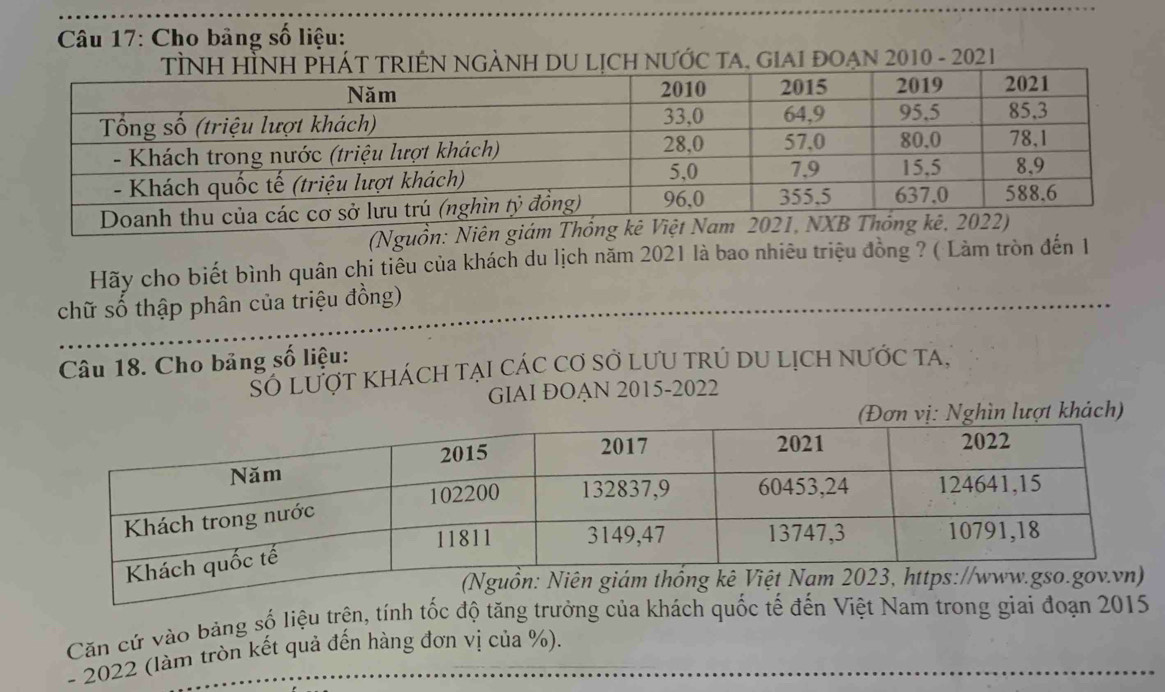 Câu 17: Cho bảng số liệu:
TÌNH HÌNH PHÁT TRIỂN NGÀNH DU LỊCH NƯỚC TA, GIAI ĐOẠN 2010 - 2021
Năm 2010 2015 2019 2021
Tổng số (triệu lượt khách) 33,0 64,9 95,5 85,3
- Khách trong nước (triệu lượt khách) 28,0 57,0 80,0 78,1
- Khách quốc tế (triệu lượt khách) 5,0 7,9 15,5 8,9
Doanh thu của các cơ sở lưu trú (nghìn tỷ đồng) 96,0 355,5 637,0 588,6
(Nguồn: Niên giám Thống kê Việt Nam 2021, NXB Thống kê, 2022)
Hãy cho biết bình quân chi tiêu của khách du lịch năm 2021 là bao nhiêu triệu đồng ? ( Làm tròn đến 1
chữ số thập phân của triệu đồng)
Câu 18. Cho bảng số liệu:
SỐ LƯỢT KHÁCH TẠI CÁC CƠ SỞ LƯU TRÚ DU LỊCH NƯỚC TA,
GIAI ĐOẠN 2015-2022
(Đơn vị: Nghìn lượt khách)
Năm 2015 2017 2021 2022
Khách trong nước 102200 132837,9 60453,24 124641,15
Khách quốc tế 11811 3149,47 13747,3 10791,18
(Nguồn: Niên giám thống kê Việt Nam 2023, https://www.gso.gov.vn)
Căn cứ vào bảng số liệu trên, tính tốc độ tăng trưởng của khách quốc tế đến Việt Nam trong giai đoạn 2015
- 2022 (làm tròn kết quả đến hàng đơn vị của %).